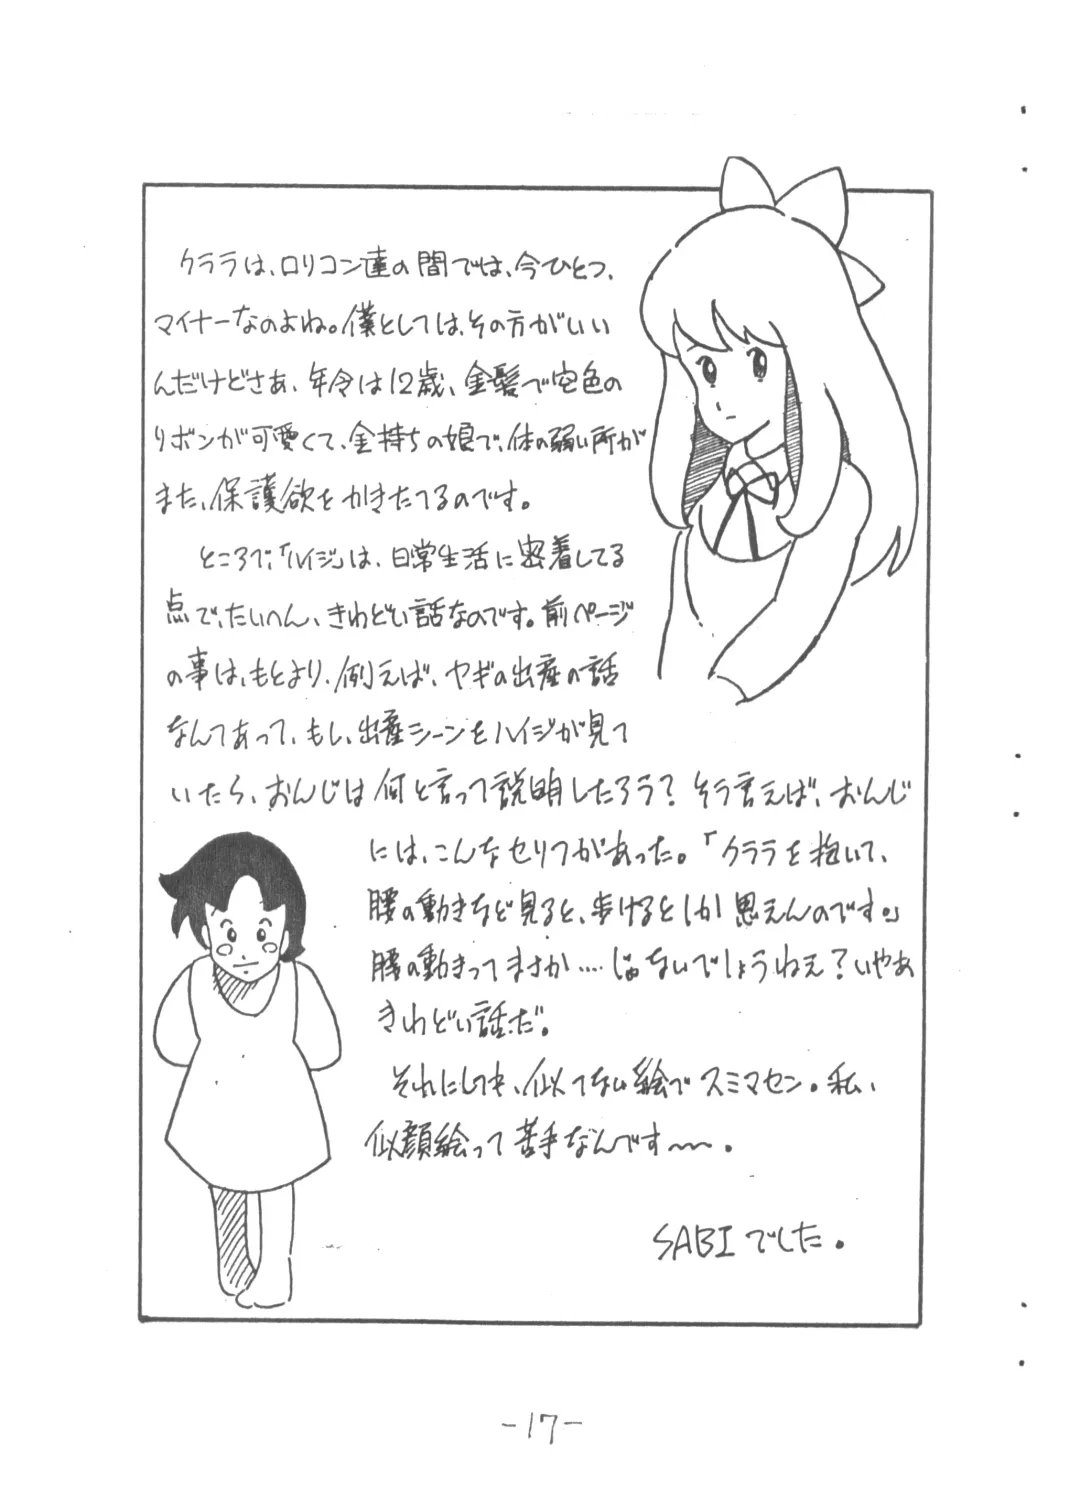 クララは、ロリコン達の間では、今ひとつ、
マイナーなのよね。僕としては、その方がいい
んだけどさあ、年令は12歳、金髪で空色の
リボンが可愛くて、金持ちの娘で、体の弱い所が
また、保護欲をかきたてるのです。
ところで、「ハイジ」は、日常生活に密着してる
点で、たいへん、きわどい話なのです。前ページ
の事は、もとより、例えば、ヤギの出産の話
なんてあって、もし、出産シーンをハイジが見て
いたら、おんじは何と言って説明したろう？そう言えば、おんじ
には、こんなセリフがあった。「クララを抱いて、
腰の動きなど見ると、歩けるとしか思えんのです。」
腰の動きってまさか‥‥じゃないでしょうねえ？いやあ
きわどい話だ。
それにしても、似てない絵でスミマセン。私、
似顔絵って苦手なんです〜〜。
SABIでした。
-17-